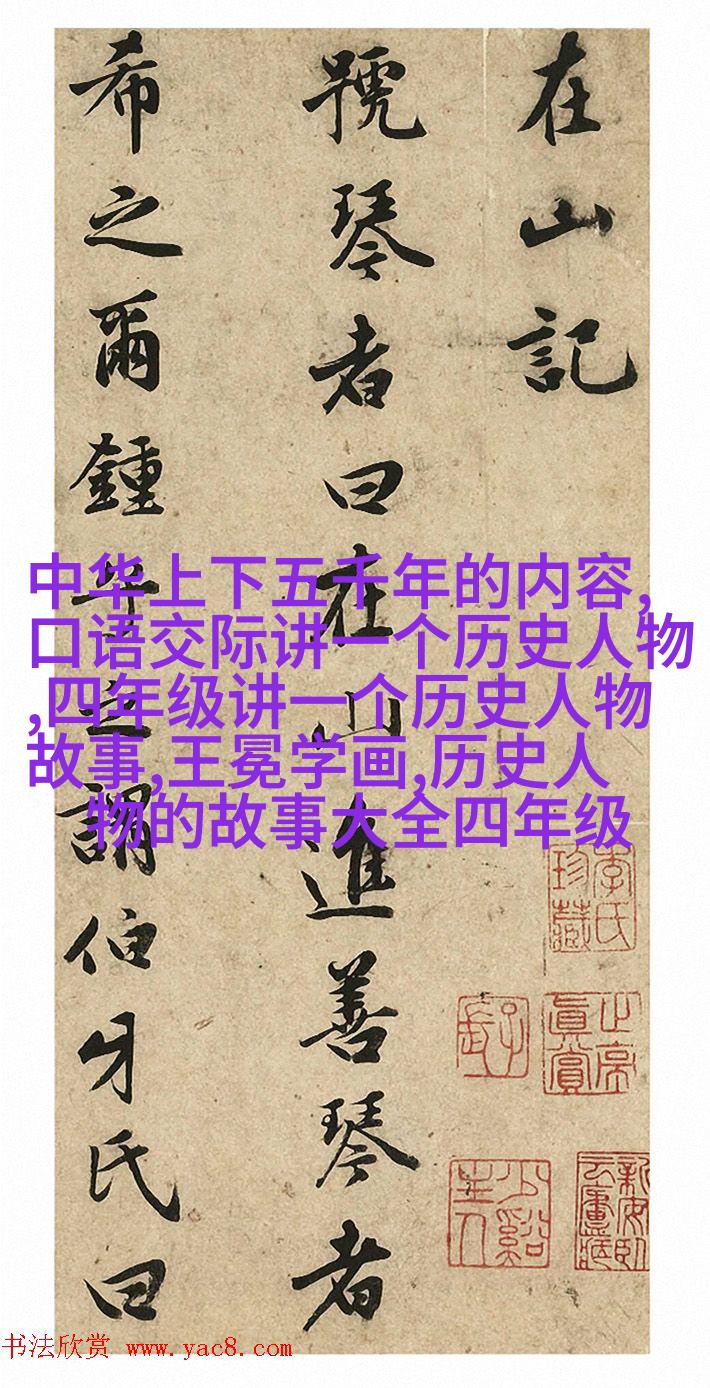 在山記
號琴者曰在山進善琴者
希之爾鍾之謂伯牙氏曰
中华上下五千年的内容,
口语交际讲一个历史人物
,四年级讲一个历史人物
故事,王冕学画,历史人
物的故事大全四年级
李氏珍藏
止亭真賞
少谿主人
书法欣赏 www.yac8.com